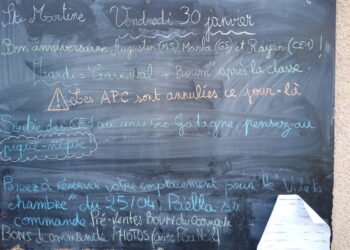 Ste Martine Vendredi 30 janvier
Bon anniversaire Augustin (MS), Marla (GS) et Rayan (CE1)!
Mardi = "Carnaval + Boum" après la classe
⚠ Les APC sont annulées ce jour-là
Sortie des CE1 au musée Gadagne, pensez au
pique-nique!
Pensez à réserver votre emplacement pour le "Vide ta
chambre" du 25/04!
commande Pré-ventes BOUM du Carnaval
BONS de commande PHOTOS (avec Père Noël)